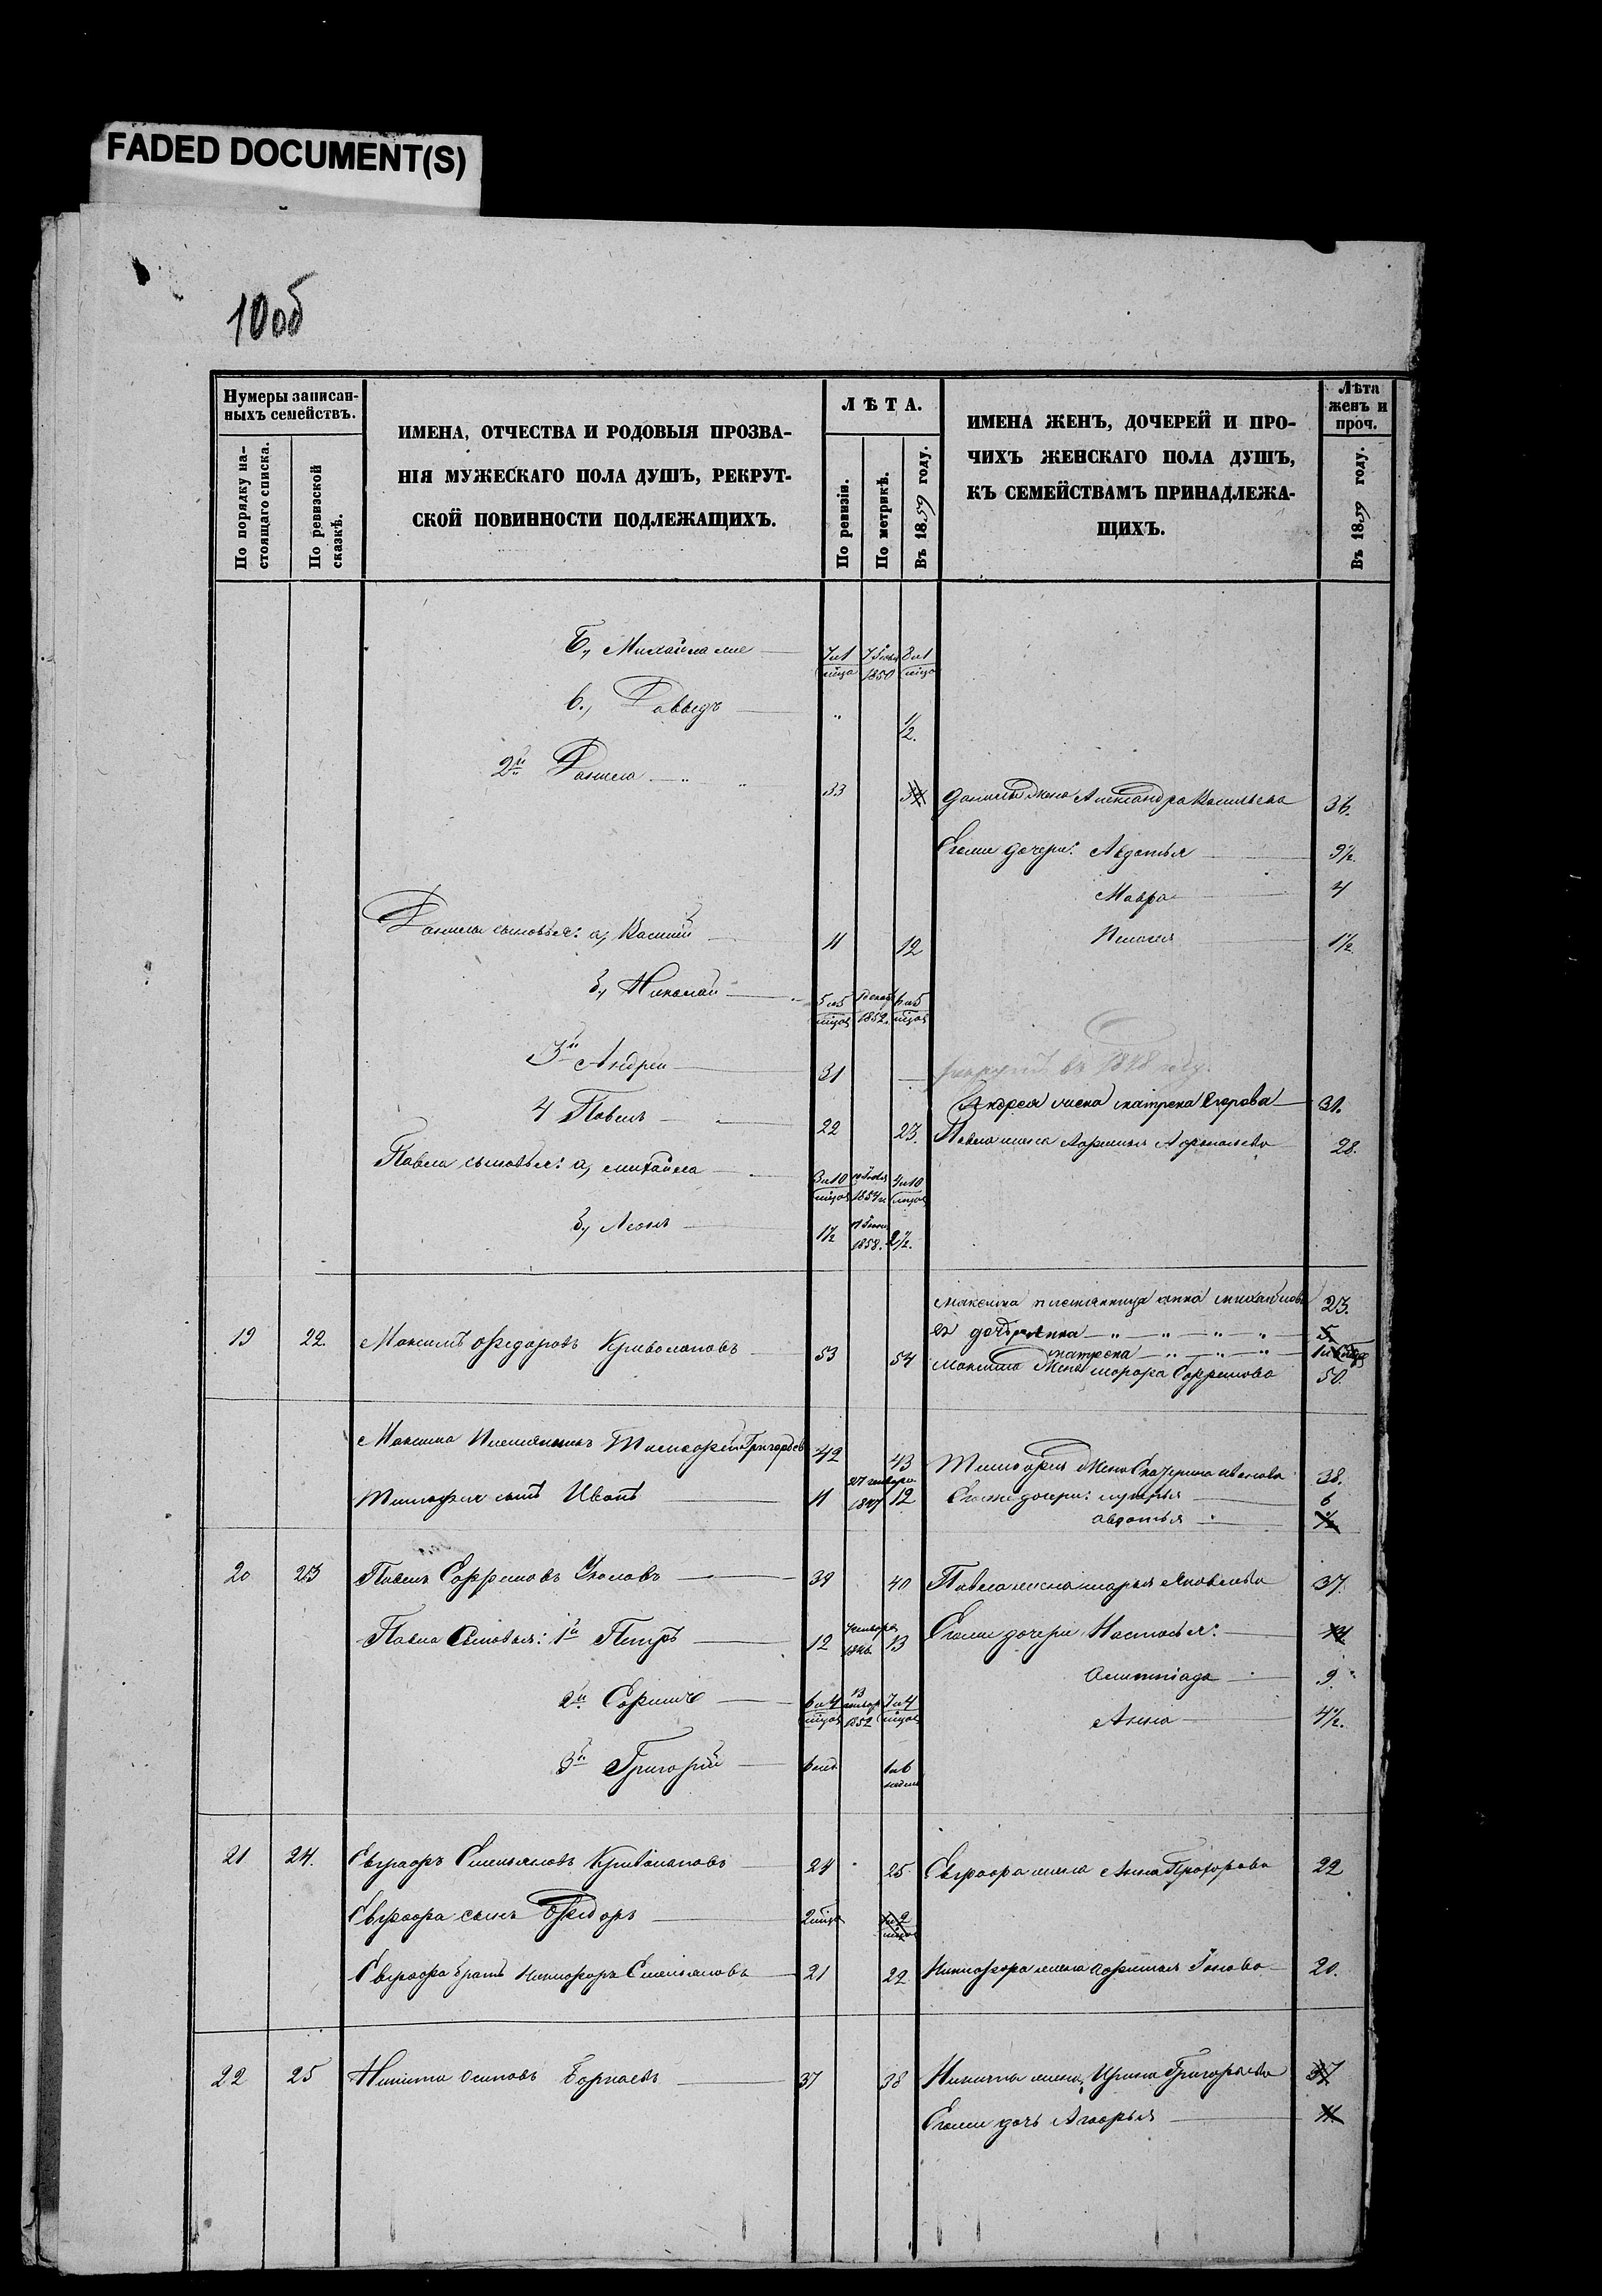 FADED DOCUMENT(S)
10об
Нумеры записан-
ныхъ семействъ.
По порядку на-
стоящаго списка.
По ревизской
сказкѣ.
ИМЕНА, ОТЧЕСТВА И РОДОВЫЯ ПРОЗВА-
НІЯ МУЖЕСКАГО ПОЛА ДУШЪ, РЕКРУТ-
СКОЙ ПОВИННОСТИ ПОДЛЕЖАЩИХЪ.
ЛѢТА.
По ревизіи.
По метрикѣ.
Въ 1859 году.
ИМЕНА ЖЕНЪ, ДОЧЕРЕЙ И ПРО-
ЧИХЪ ЖЕНСКАГО ПОЛА ДУШЪ,
КЪ СЕМЕЙСТВАМЪ ПРИНАДЛЕЖА-
ЩИХЪ.
Лѣта
женъ и
проч.
Въ 1859 году.
Б, Михайла 7 и 1 1850 8 и 1
в, Давыдъ " 1/2.
2й Данила 33 34 Данилы жена Александра Васильева 36.
Егоже дочери: Авдотья 9 1/2.
Мавра 4
Данилы сыновья: а, Василій 11 12 Пелагея 1 1/2.
б, Николай 5 и 5 1852. 6 и 5
3й Андрей 31 — въ 1848 году.
Андрея жена Матрена Егорова 31.
4 Павелъ 22 23. Павла жена 28.
Павла сыновья: а, Михайла 3 и 10 1854 4 и 10
б, Леонъ 1 1/2 1858. 2 1/2.
Максима племянница Анна Михайлова 23.
19 22. Максимъ Ѳедоровъ Криволаповъ 53 54 ея дочь Анна 5.
Матрена
Максима жена 50.
Максима племянникъ Тимофей Григорьевъ 42 43 Тимофея жена Екатерина Иванова 38.
Тимофея сынъ Иванъ 11 27 генваря 1847 12 Егоже дочери: Лукерья 6
Авдотья
20 23 Павелъ 39 40 Павла жена Марья Яковлева 37.
Павла сыновья: 1й Петръ 12 1846 13 Егоже дочери Настасья
Олимпіада 9.
2й 6 и 4 13 1852 7 и 4 Анна 4 1/2.
3й Григорій 6 нед. 1 и 6
21 24. Евграфъ Емельяновъ Криволаповъ 24 25 Евграфа жена Анна Прохорова 22
Евграфа сынъ Ѳедоръ 2
Евграфа братъ Никифоръ Емельяновъ 21 22 Никифора жена Афимья 20.
22 25 Никита Осиповъ 37 38 Никиты жена Ирина Григорьева 37
Егоже дочь